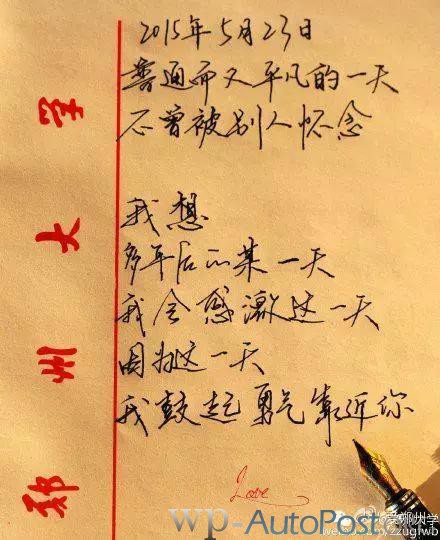 2015年5月23日
普通而又平凡的一天
不曾被别人怀念
我想
多年后的某一天
我会感激这一天
因为这一天
我鼓起勇气靠近你
郑州大学
Love
wp-AutoPost